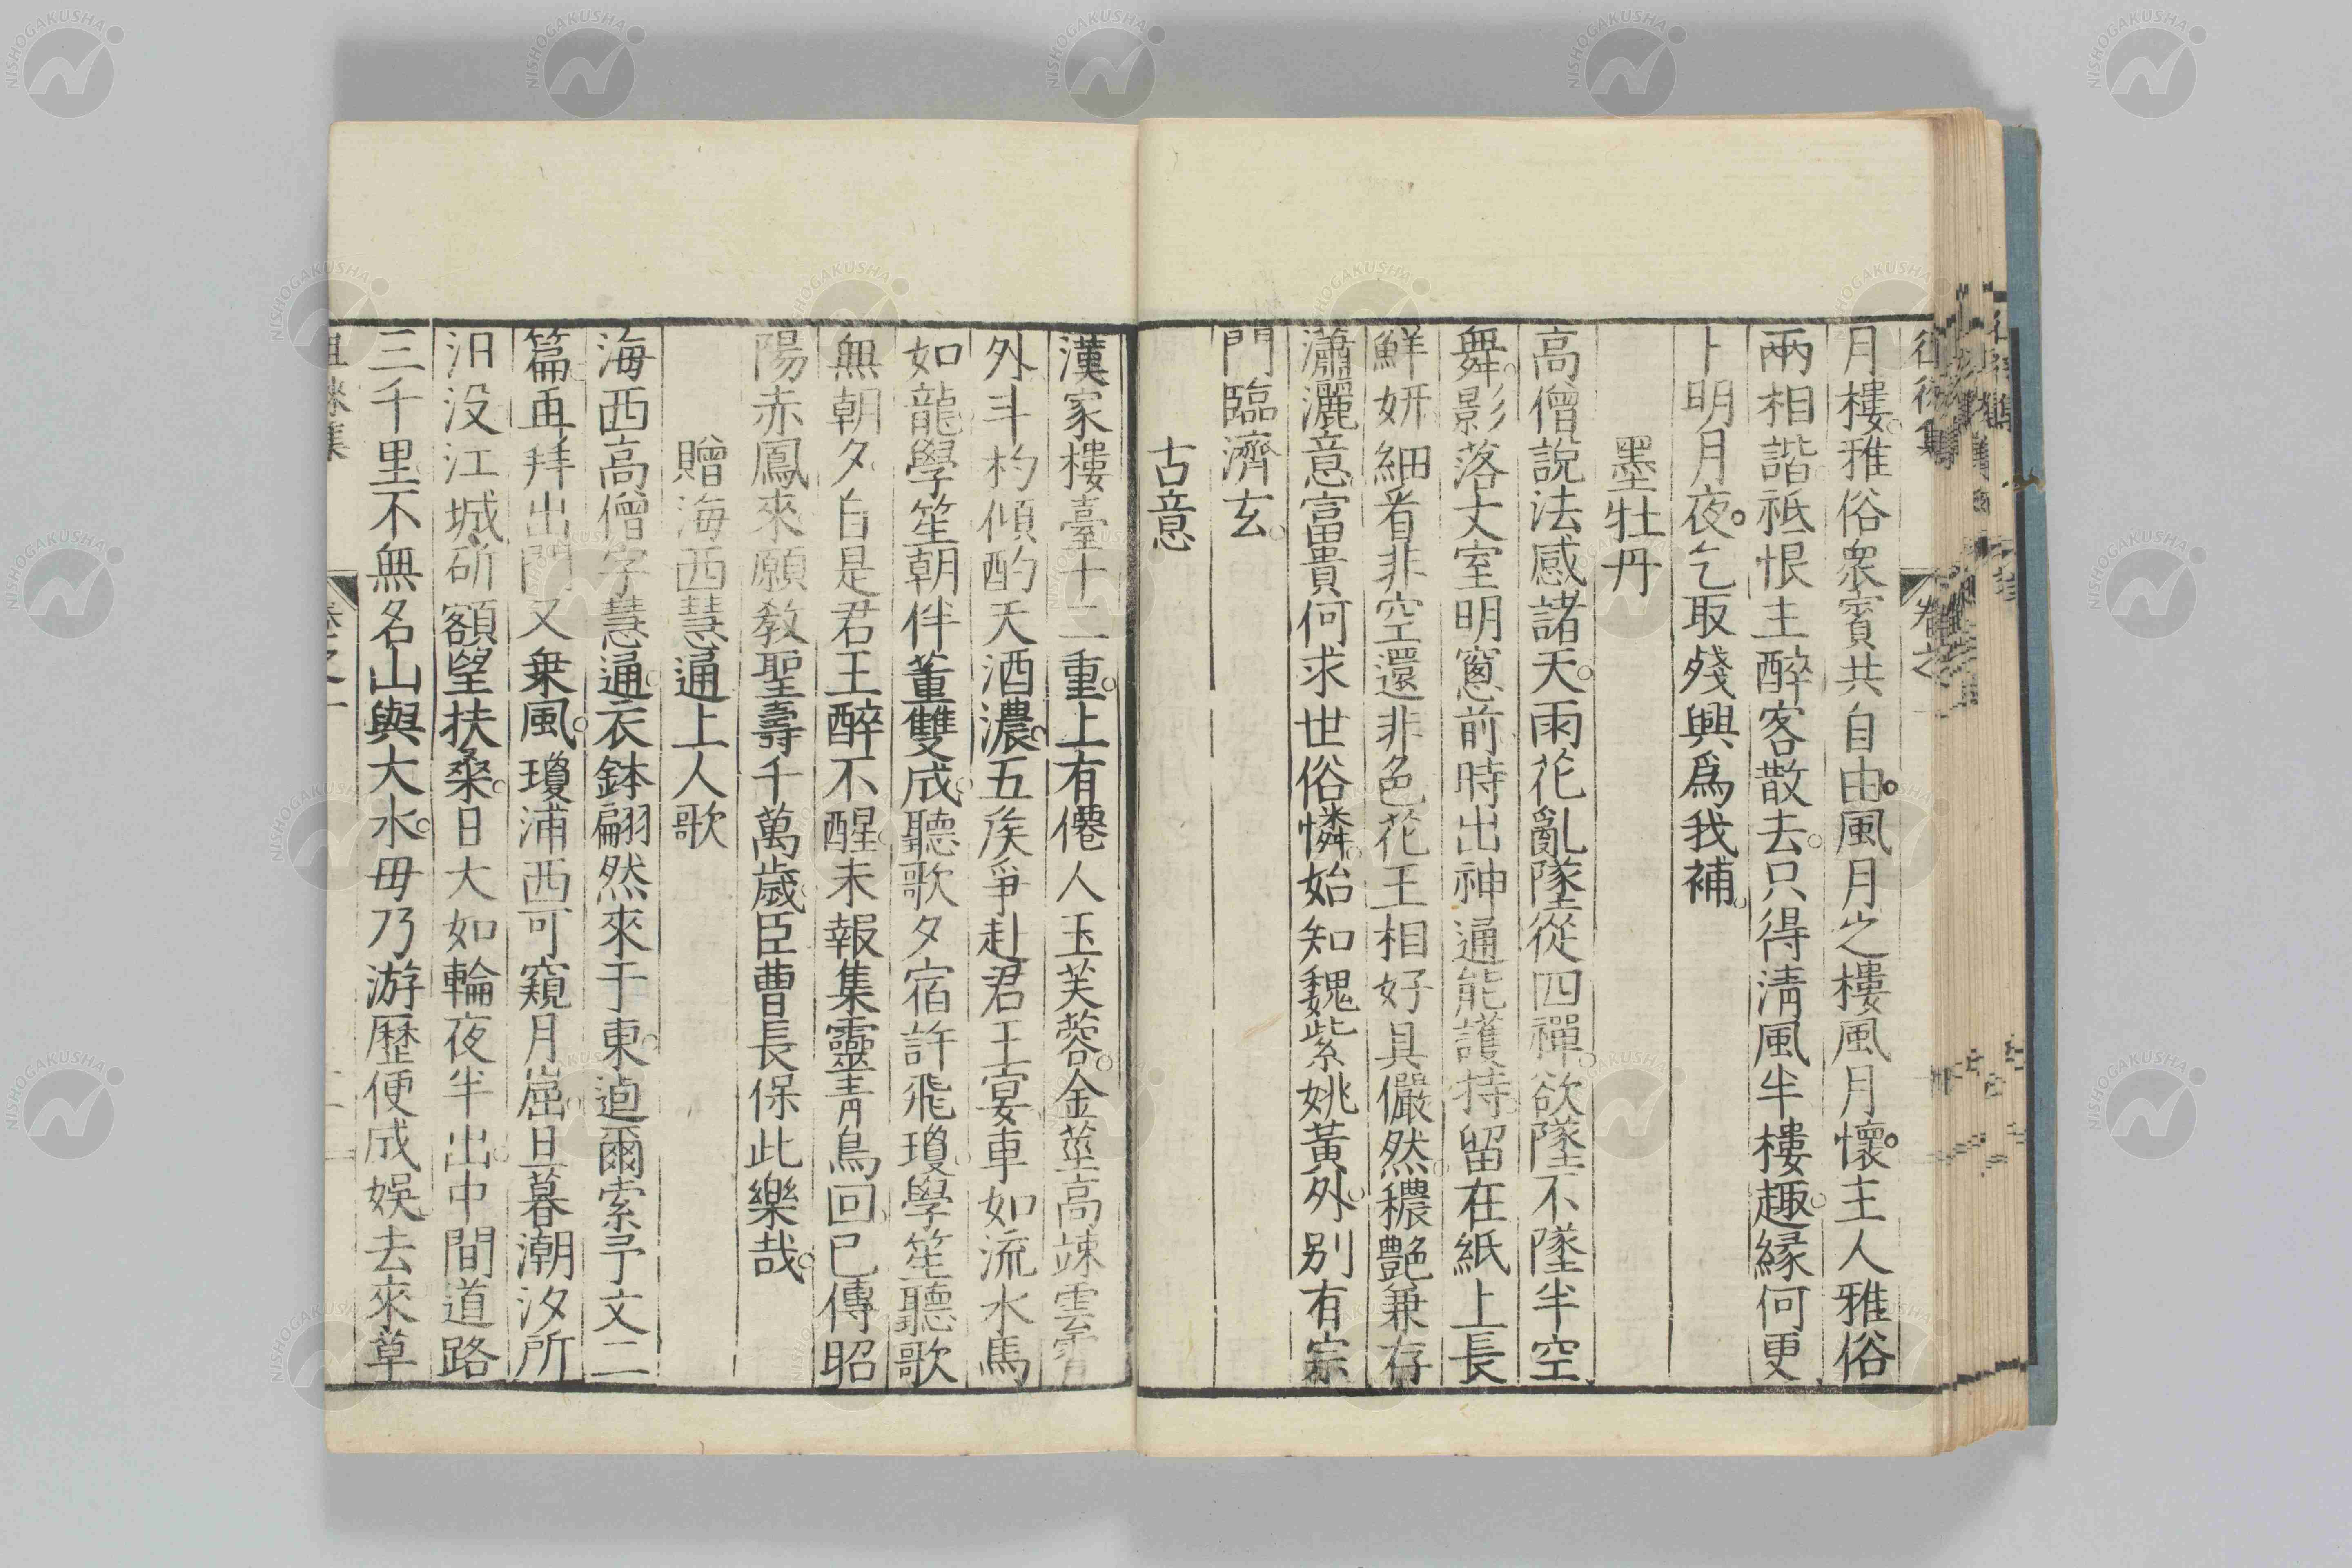 月樓雅俗衆賓共自由風月之樓風月懷主人雅俗
兩相諧祗恨主醉客散去只得淸風半樓趣緣何更
卜明月夜乞取殘興爲我補
墨牡丹
高僧說法感諸天雨花亂墜從四禪欲墜不墜半空
舞影落丈室明窻前時出神通能護持留在紙上長
鮮妍細看非空還非色花王相好具儼然穠艶兼存
瀟灑意富貴何求世俗憐始知魏紫姚黃外別有宗
門臨濟玄
古意
漢家樓臺十二重上有僊人玉芙蓉金莖高竦雲霄
外斗杓傾酌天酒濃五矦爭赴君王宴車如流水馬
如龍學笙朝伴董雙成聽歌夕宿許飛瓊學笙聽歌
無朝夕自是君王醉不醒未報集靈靑鳥回已傳昭
陽赤鳳來願敎聖壽千萬歲臣曹長保此樂哉
贈海西慧通上人歌
海西高僧字慧通衣鉢翩然來于東逌爾索予文二
篇再拜出門又乗風瓊浦西可窺月崫旦暮潮汐所
汨没江城矸額望扶桑日大如輪夜半出中間道路
三千里不無名山與大水毋乃游歷便成娛去來草